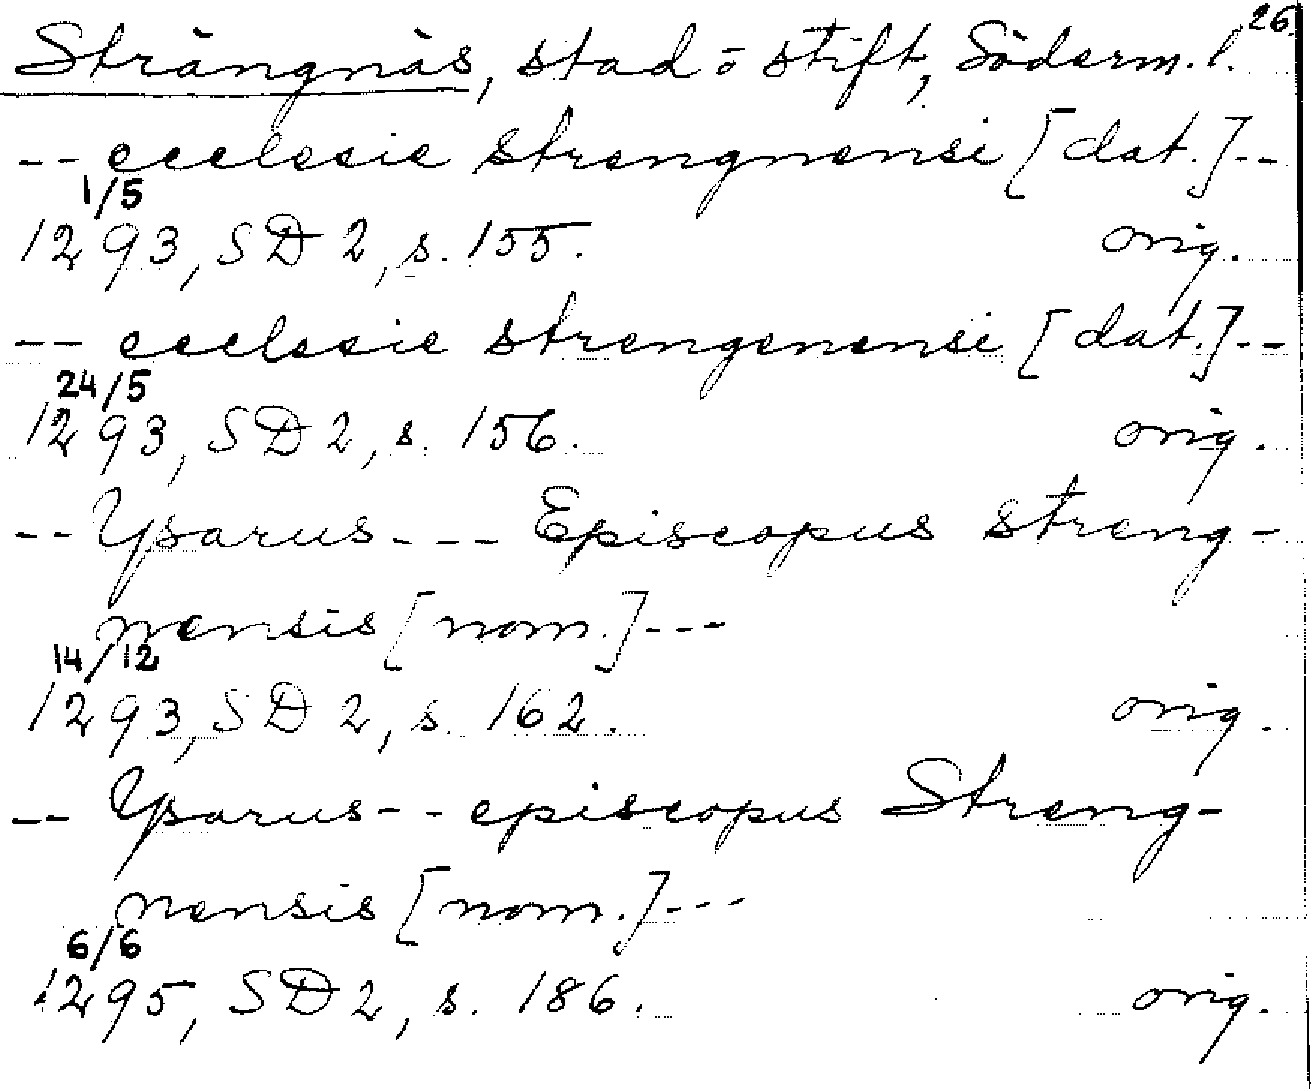 26.
Strängnäs, stad o stift, Söderm. l.
-- ecclesie strengnensi [dat.]--
1/5
1293, SD 2, s. 155. orig.
-- ecclesie strengenensi [dat.]--
24/5
1293, SD 2, s. 156. orig.
-- Ysarus --- Episcopus streng-
nensis [nom.]---
14/12
1293, SD 2, s. 162. orig.
-- Ysarus -- episcopus Streng-
nensis [nom.]---
6/6
1295, SD 2, s. 186. orig.